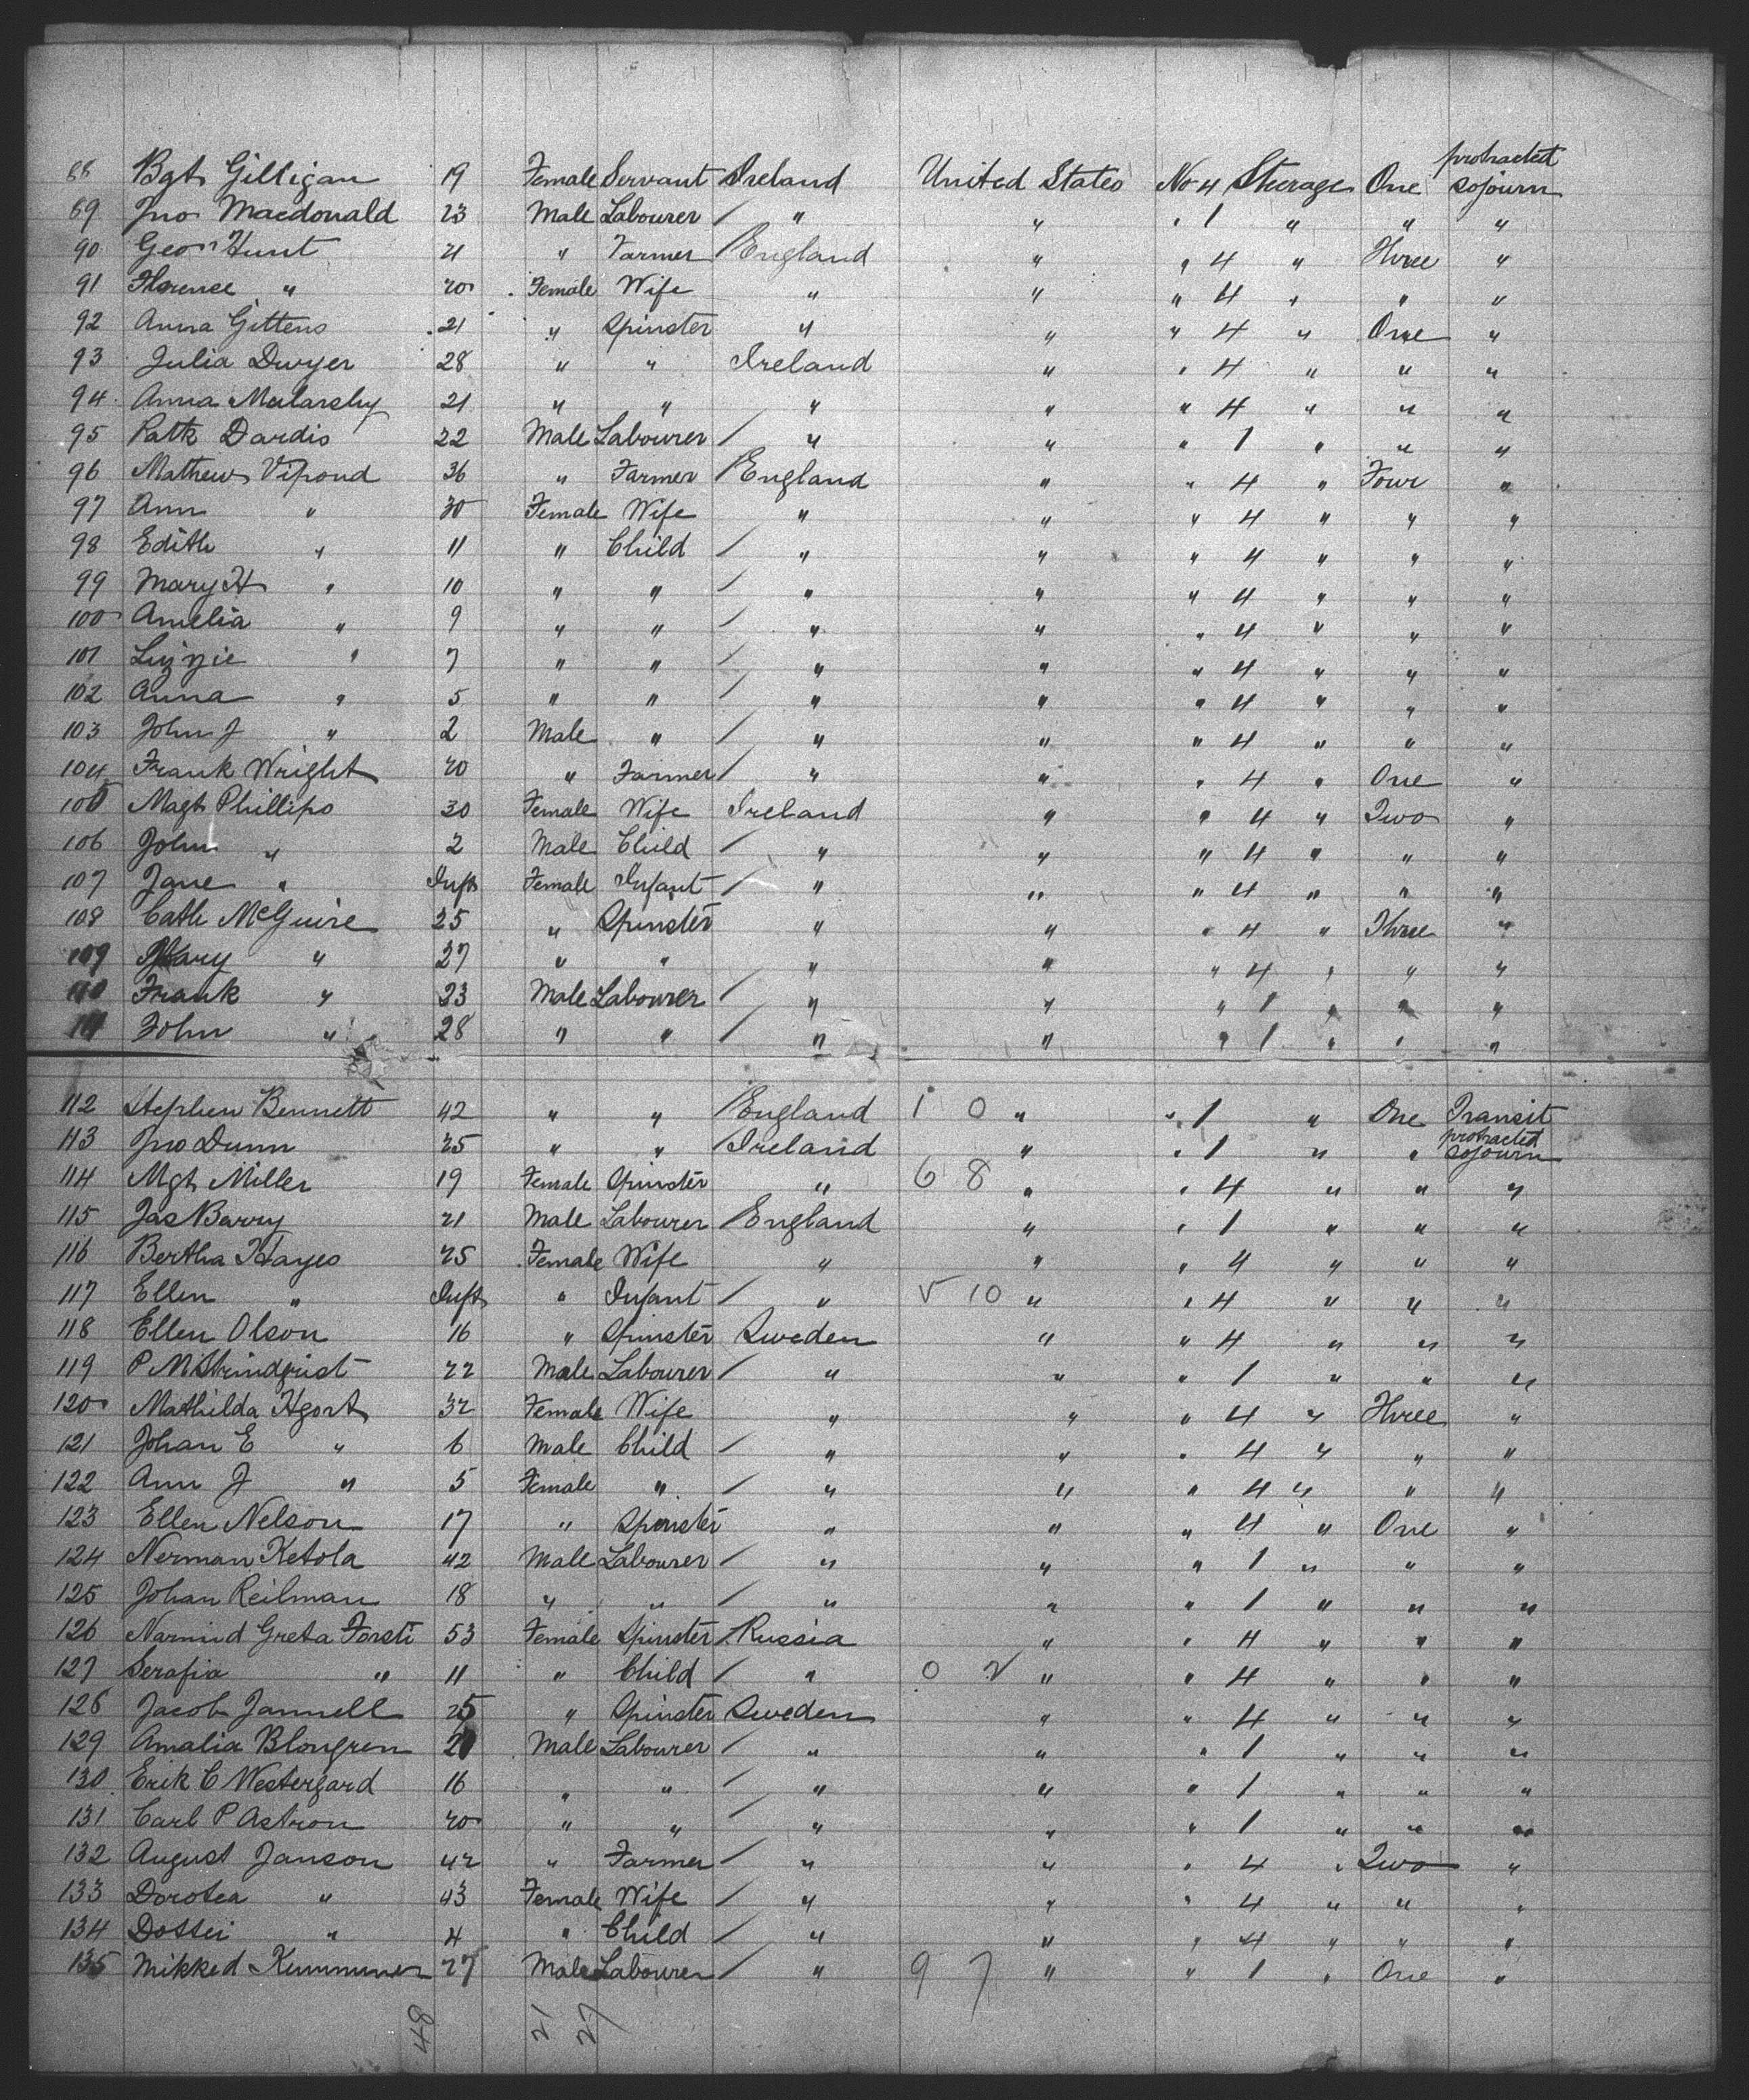 88 Bgt Gilligan 19 Female Servant Ireland United States No 4 Steerage One protracted sojourn
89 Jno Macdonald 23 Male Labourer / " " " 1 " " "
90 Geo Hunt 21 " Farmer England " " 4 " Three "
91 Florence " 20 Female Wife " " " 4 " " "
92 Anna Gittens 21 " Spinster " " " 4 " One "
93 Julia Dwyer 28 " " Ireland " " 4 " " "
94 Anna Mularshy 21 " " " " " 4 " " "
95 Patk Dardis 22 Male Labourer / " " " 1 " " "
96 Mathew Vipond 36 " Farmer England " " 4 " Four "
97 Ann " 30 Female Wife " " " 4 " " "
98 Edith " 11 " Child / " " " 4 " " "
99 Mary H " 10 " " / " " " 4 " " "
100 Amelia " 9 " " / " " " 4 " " "
101 Lizzie " 7 " " / " " " 4 " " "
102 Anna " 5 " " / " " " 4 " " "
103 John J " 2 Male " / " " " 4 " " "
104 Frank Wright 20 " Farmer / " " " 4 " One "
105 Magt Phillips 30 Female Wife Ireland " " 4 " Two "
106 John " 2 Male Child / " " " 4 " " "
107 Jane " Inft Female Infant / " " " 4 " " "
108 Cath McGuire 25 " Spinster " " " 4 " Three "
109 Mary " 27 " " " " " 4 " " "
110 Frank " 23 Male Labourer / " " " 1 " " "
111 John " 28 " " / " " " 1 " " "
112 Stephen Bennett 42 " " England 1 0 " " 1 " One Transit
113 Jno Dunn 25 " " Ireland " " 1 " " protracted sojourn
114 Mgt Miller 19 Female Spinster " 6 8 " " 4 " " "
115 Jas Barry 21 Male Labourer England " " 1 " " "
116 Bertha Hayes 25 Female Wife " " " 4 " " "
117 Ellen " Inft " Infant / " 5 10 " " 4 " " "
118 Ellen Olson 16 " Spinster Sweden " " 4 " " "
119 P M Strindqvist 22 Male Labourer / " " " 1 " " "
120 Mathilda Hgort 32 Female Wife " " " 4 " Three "
121 Johan E " 6 Male Child / " " " 4 " " "
122 Ann J " 5 Female " / " " " 4 " " "
123 Ellen Nelson 17 " Spinster " " " 4 " One "
124 Nerman Ketola 42 Male Labourer / " " " 1 " " "
125 Johan Reilman 18 " " / " " " 1 " " "
126 Narmid Greta Forsti 53 Female Spinster Russia " " 4 " " "
127 Serafia " 11 " Child / " 0 2 " " 4 " " "
128 Jacob Jannell 25 " Spinster Sweden " " 4 " " "
129 Amalia Blongren Male Labourer / " " " 1 " " "
130 Erik C Westergard 16 " " / " " " 1 " " "
131 Carl P Astron 20 " " / " " " 1 " " "
132 August Janson 42 " Farmer / " " " 4 " Two "
133 Dorotea " 43 Female Wife / " " " 4 " " "
134 Dottei " 4 " Child / " " " 4 " " "
135 Mikked Kummunen 27 Male Labourer / " 9 7 " " 1 " One "
48 21 27